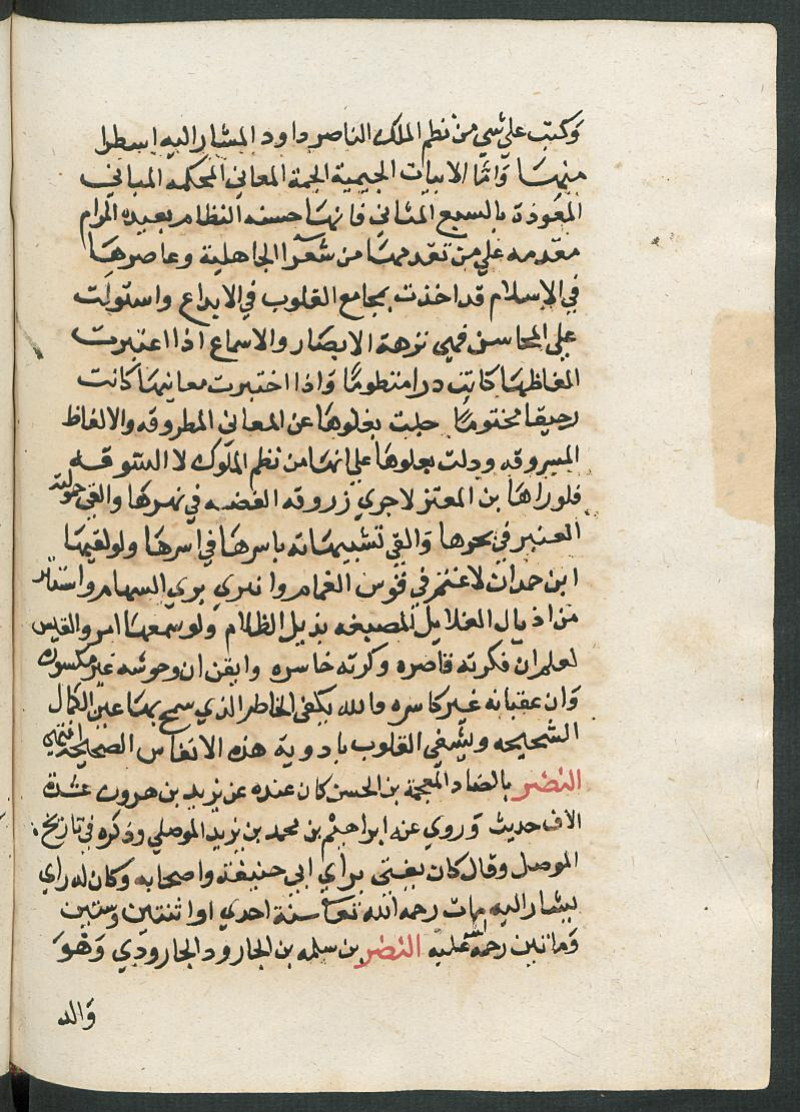 وكتب على شي من نظم الملك الناصر داود المشار اليه اسطرا
منها واما الابيات الجيمية الجمة المعاني المحكمه المباني
المعوذة بالسبع المثاني فانها حسنه النظام بعيده المرام
مقدمه على من تقدمها من شعرا الجاهلية وعاصرها
في الاسلام قد اخذت بجامع القلوب في الابداع واستولت
على المحاسن فهي نزهة الابصار والاسماع اذا اعتبرت
الفاظها كانت درا منظوما واذا اختبرت معانيها كانت
رحيقا مختوما جلت بغلوها عن المعاني المطروقه والالفاظ
المسروقه ودلت بعلوها على انها من نظم الملوك لا السوقه
فلوراها بن المعتز لاجري زروقه الفضه في نهرها والقي حمولته
العنبر في بحرها والقي تشبيهاته باسرها في اسرها ولو لقيها
ابن حمدان لاغتم في قوس الغمام وانبري بري السهام واستتر
من اذيال الغلايل المصبغه بذيل الظلام ولو سمعها امر والقيس
لعلم ان فكرته قاصره وكرته خاسره وايقن ان وحوشه غير مكسوره
وان عقبانه غير كاسره فالله يكفي الخاطر الذي سمح بها عين الكمال
الشحيحه ويشفي القلوب بادوية هذه الانفاس الصحيحه انتهي
النضر بالضاد المعجمة بن الحسن كان عنده عن يزيد بن هرون عشرة
الاف حديث وروي عنه ابراهيم بن محمد بن يزيد الموصلي وذكره في تاريخ
الموصل وقال كان يفتي براي ابي حنيفة واصحابه وكان له راي
يشار اليه مات رحمه الله تعا سنة احدي او اثنتين وستين
وماتين رحمة الله عليه النضر بن سلمه بن الجارود الجارودي وهو
والد